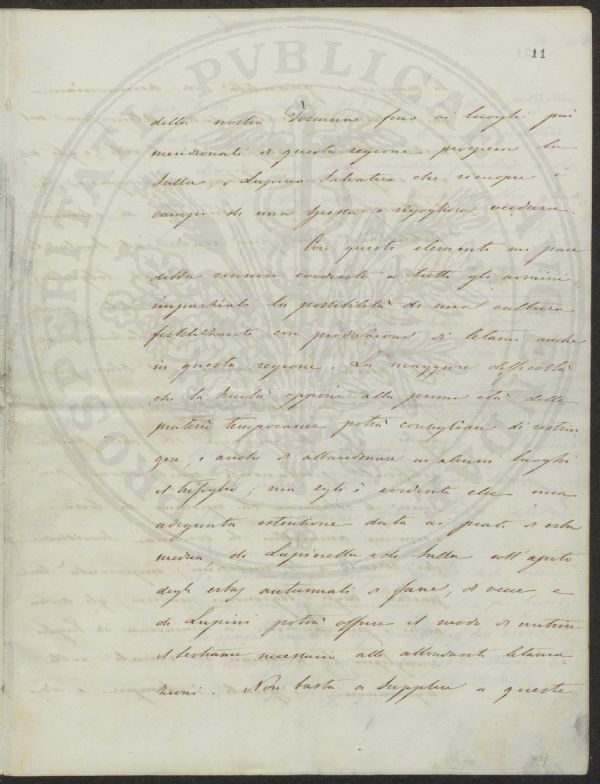 11
della nostra Toscana fino ai luoghi più
meridionali di questa regione prospera la
Sulla, e Lupino Salvatico che ricuopre i
campi di una spessa e rigogliosa verdura.
Con questi elementi mi pare
della evidente a tutti gli uomini
imparziali la possibilità di una cultura
fertilizzante con produzione di letami anche
in questa regione. La maggiore difficoltà
che la siccità oppone alla prima età delle
praterie temporanee potrà consigliare di restrin
gere, e anche di abbandonare in alcuni luoghi
il trifoglio; ma egli è evidente che una
adeguata estensione data ai prati di erba
medica, di Lupinella e di Sulla coll'ajuto
degli erbaj autunnali di fave, di vecce, e
di Lupini potrà offrire il modo di nutrire
il bestiame necessario alle abbondanti letama-
zioni. Non basta a supplire a queste
PROSPERITATI PVBLICAE